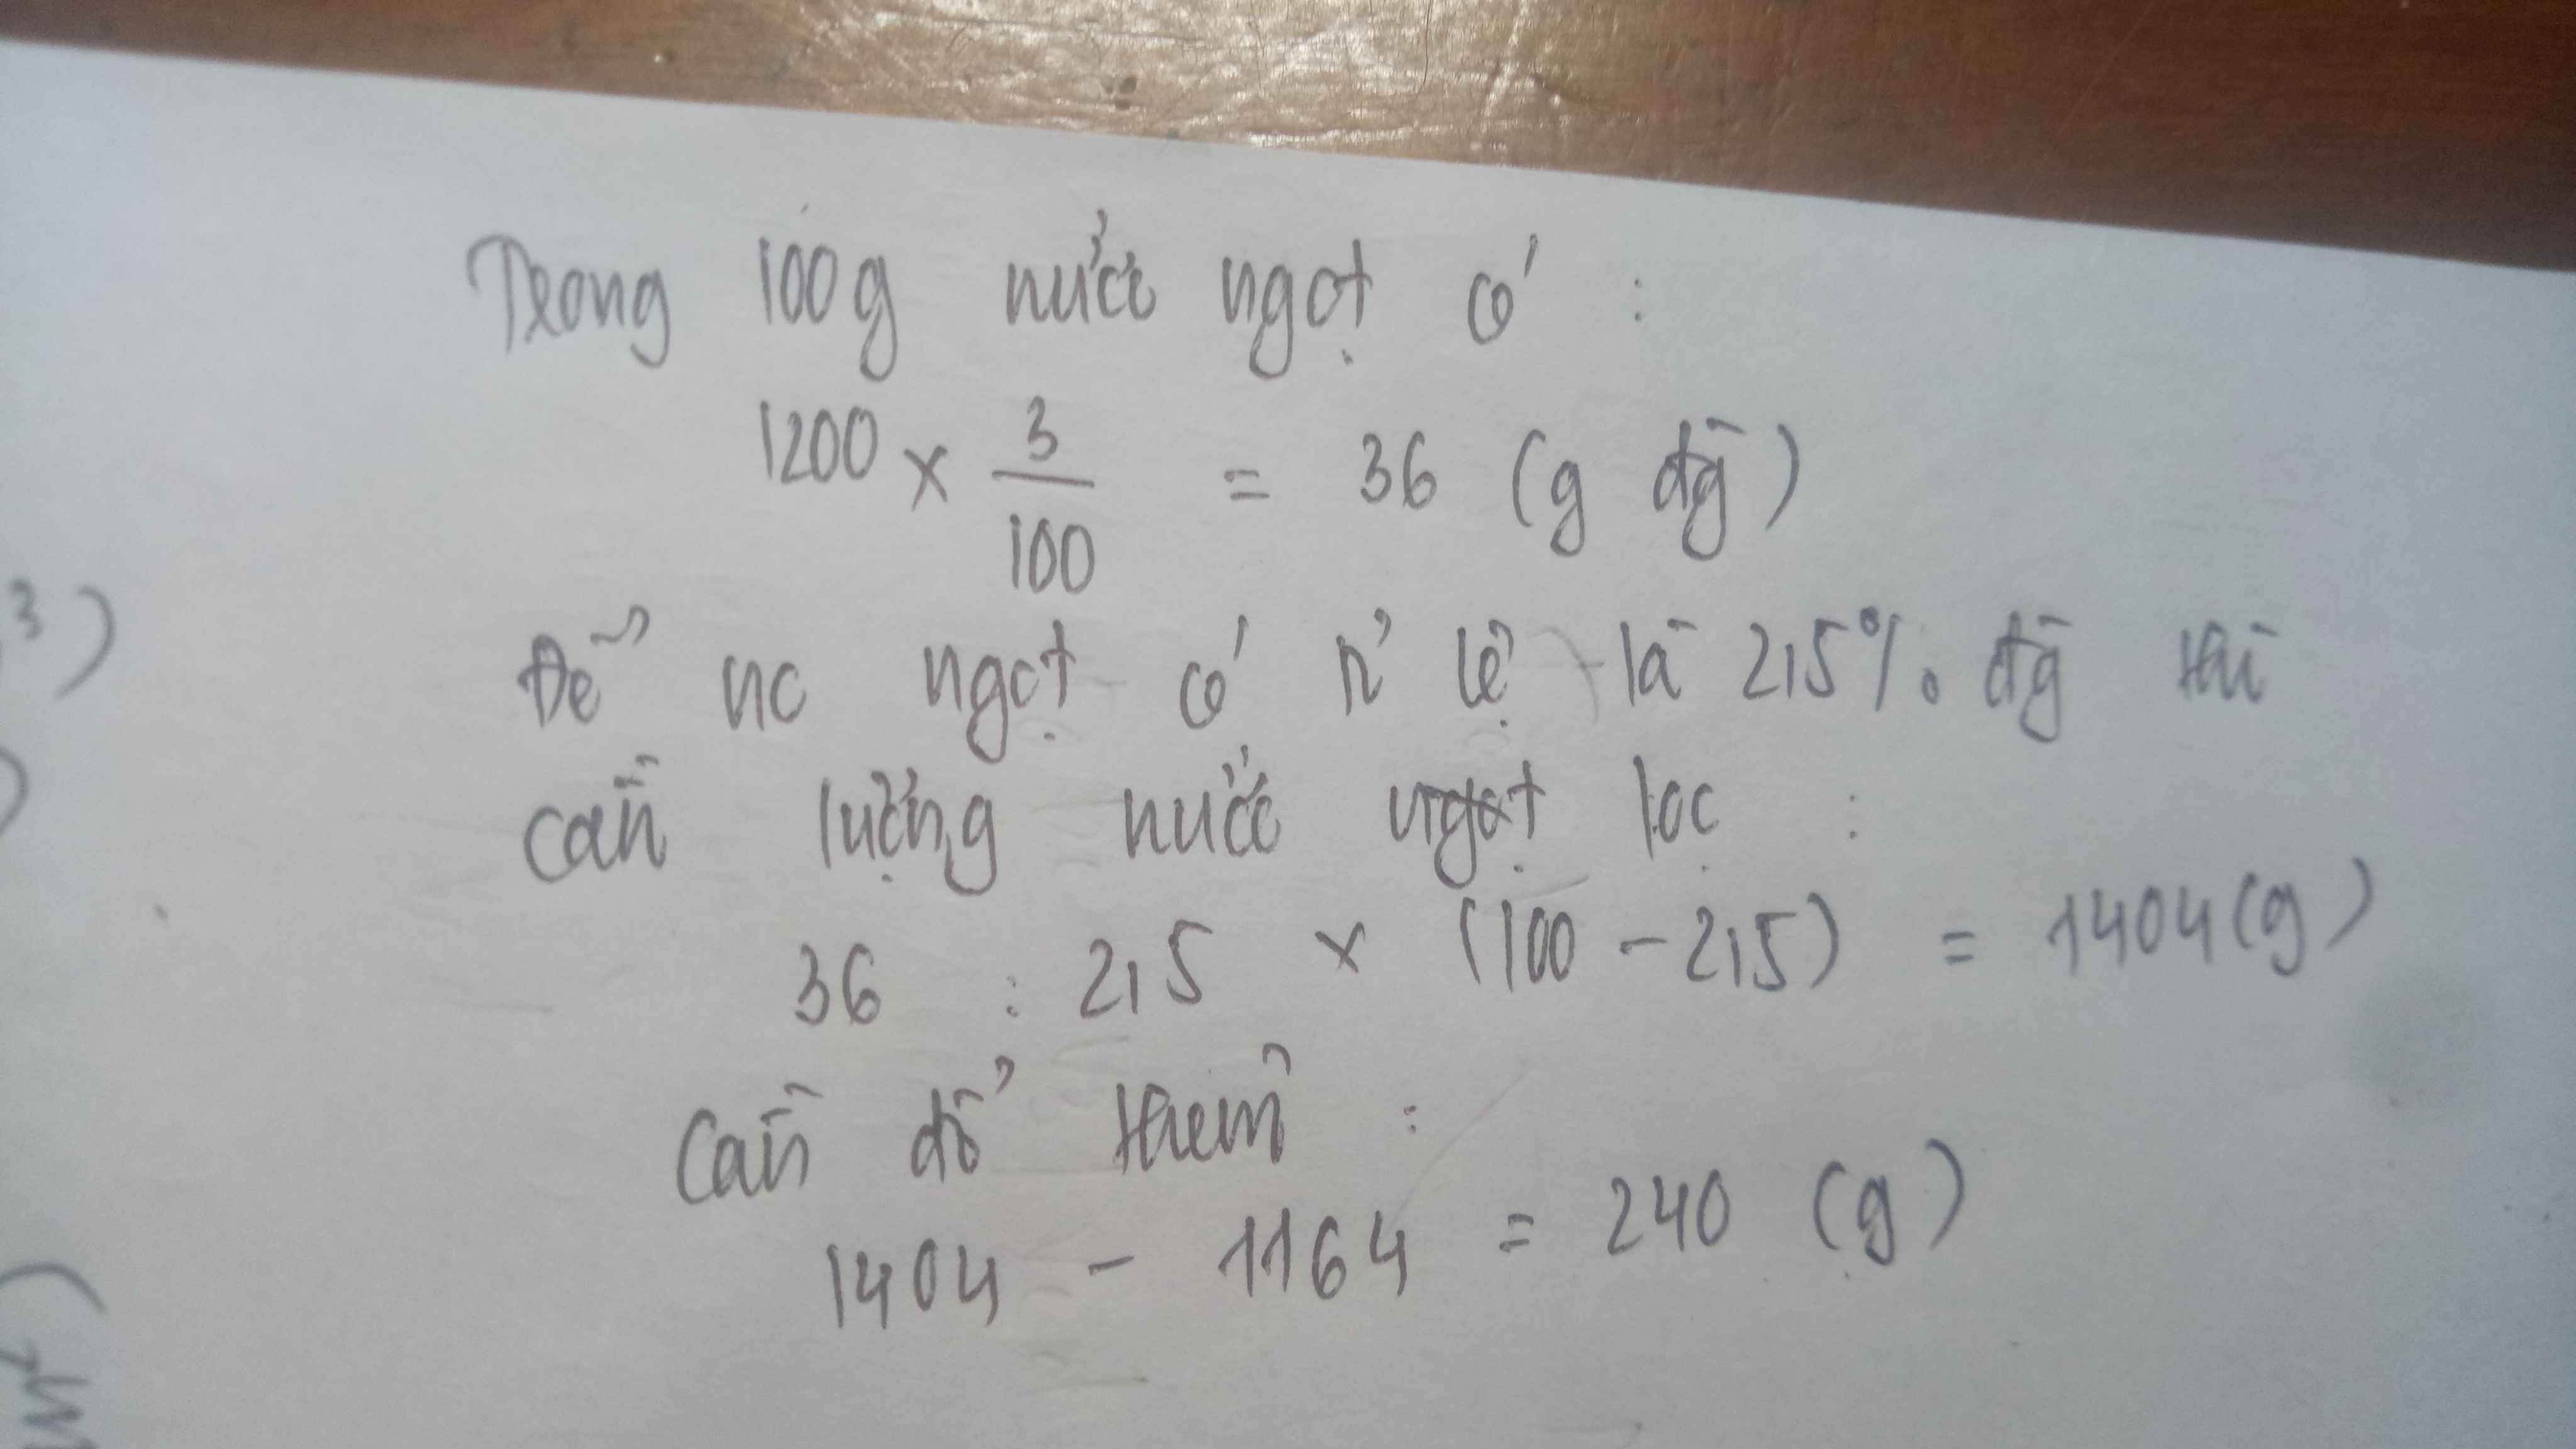 Trong 100g nước ngọt có :
1200 × 3/100 = 36 (g đg)
Để nc ngọt có tỉ lệ là 2,5% đg thì
3)
cần lượng nước ngọt lọc :
36 : 2,5 × (100 - 2,5) = 1404 (g)
Cần đổ thêm :
1404 - 1164 = 240 (g)